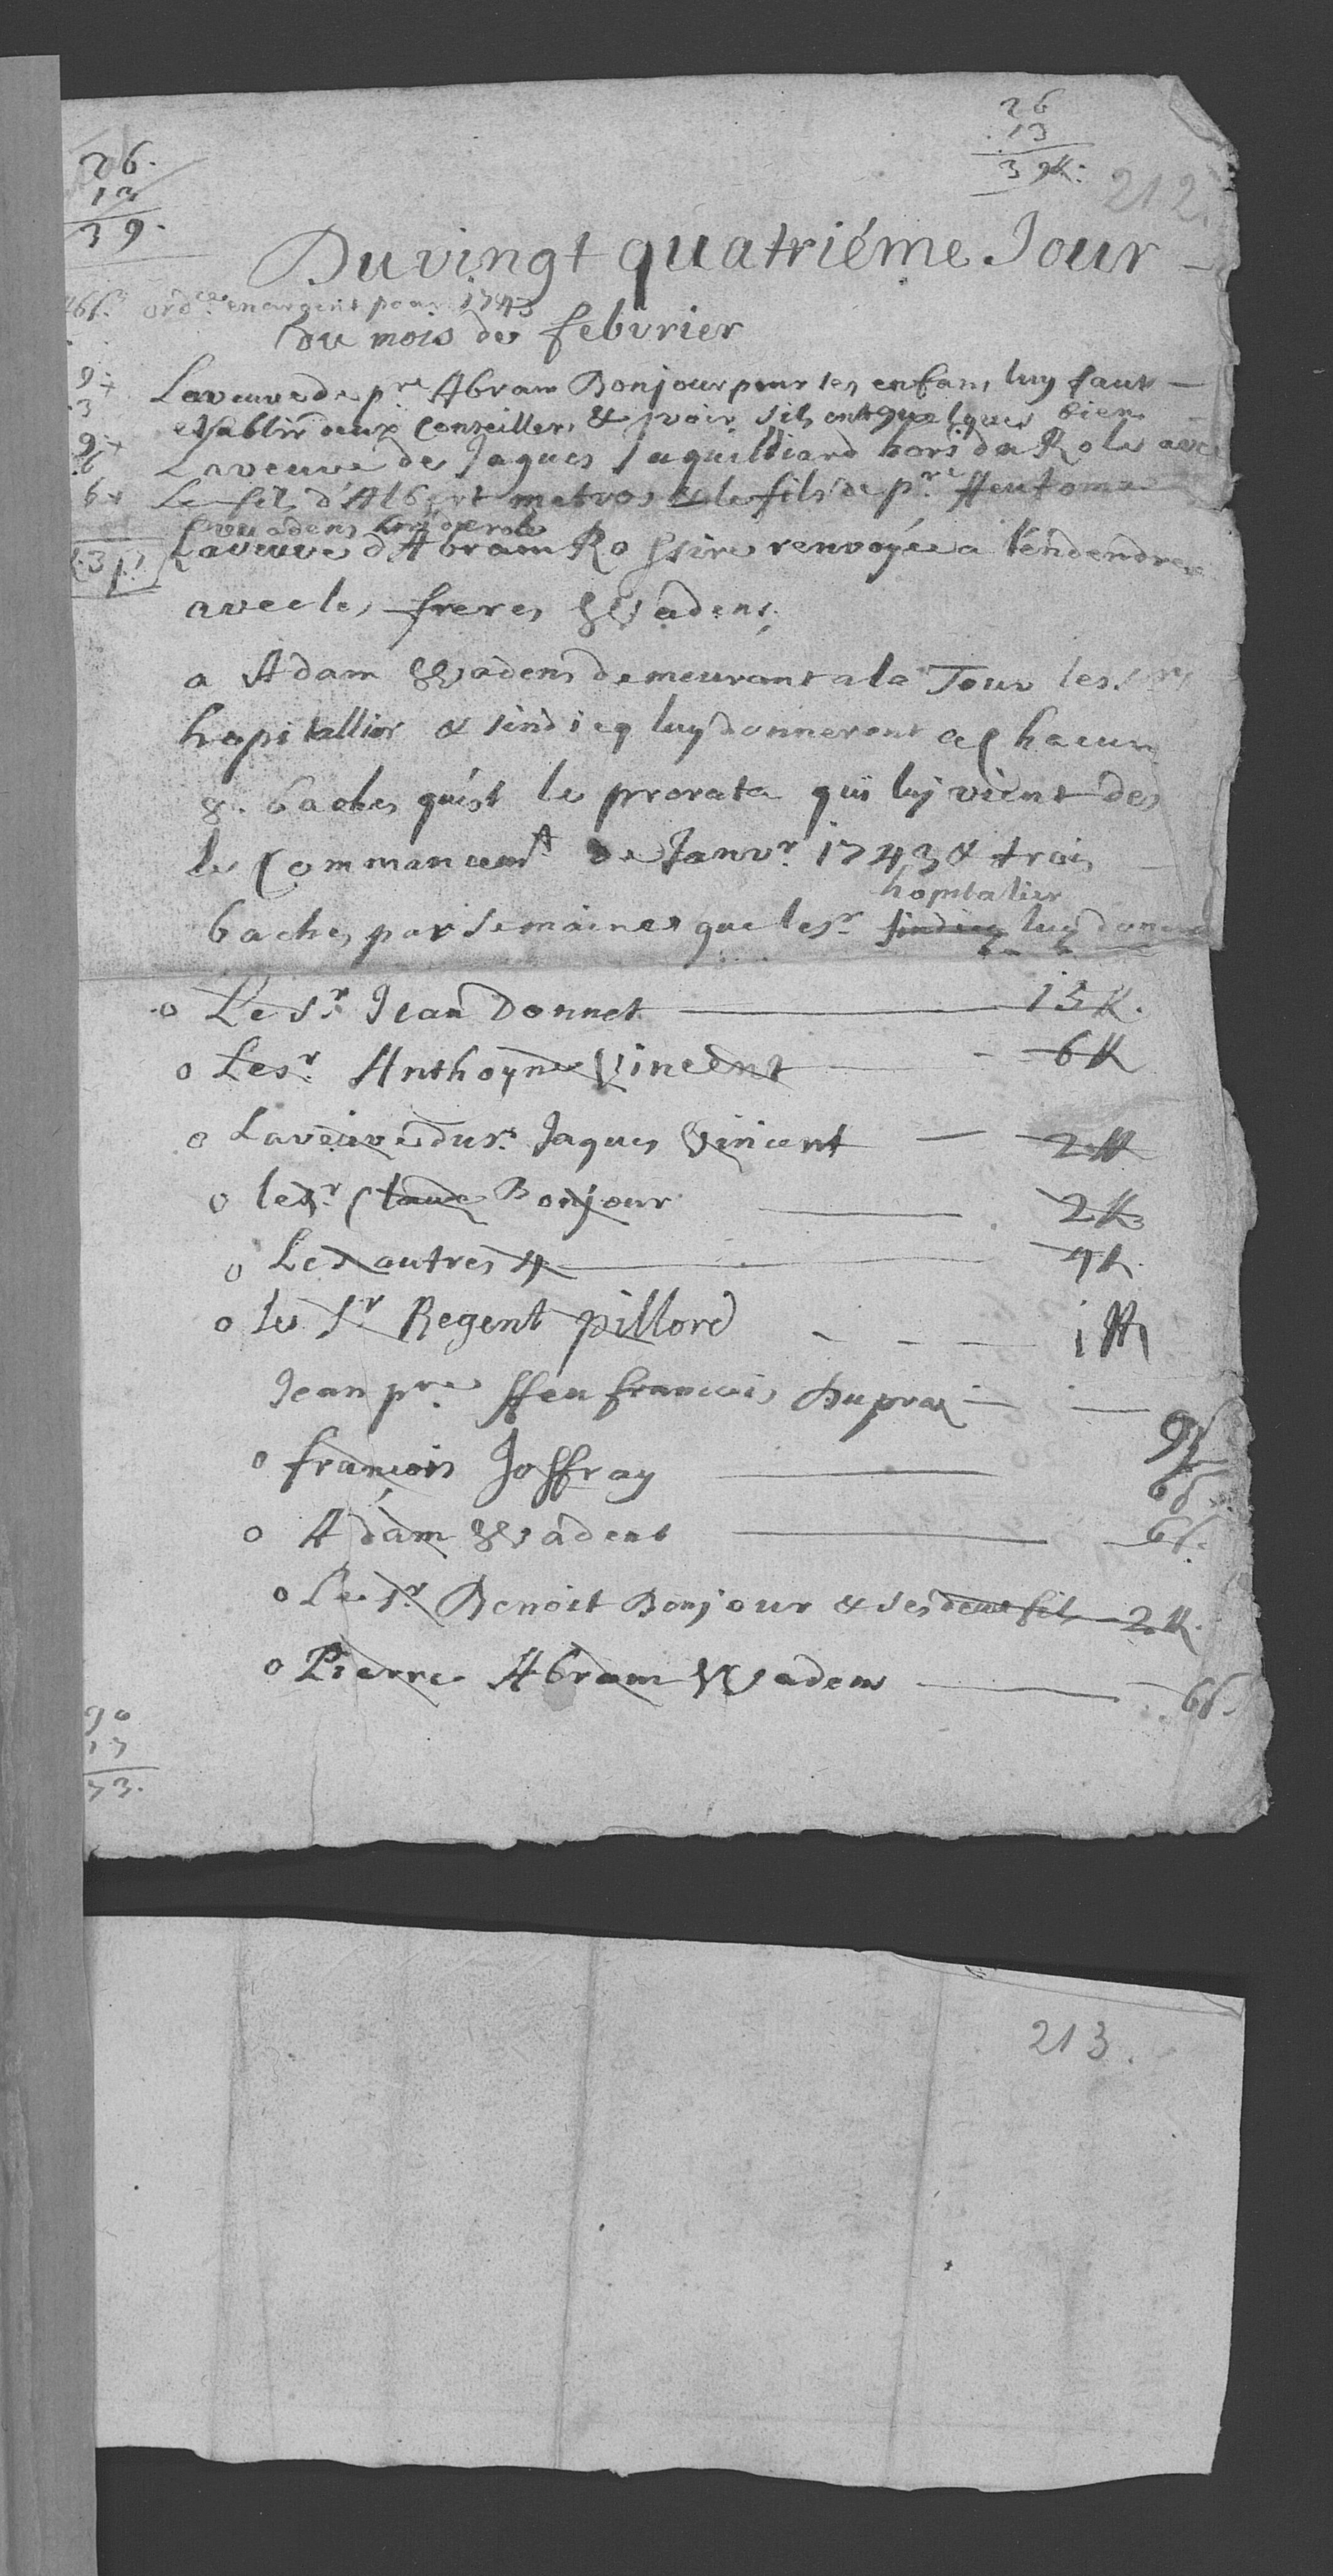 26
13
39 ℔:
212.
26.
13
39.
Du vingt quatriéme Jour
ord.ce en argent pour 1743
du mois de febvrier
9 +
3
9 +
6
6 +
La veuve de p.re Abram Bonjour pour les enfans luy faut
establir deux Conseillers & voir sils ont quelques bien
La veuve de Jaques Jaquilliard hors du Role avec
Le fils d'Albert metroz & le fils de p.re ffeu toma
vuadens hors de role
La veuve d'Abram Rossire renvoyée a l'endendre
avec les freres Wadens
a Adam Wadens demeurant a la Tour les srs
hopitallier & sindicq luy donneront a chacun
8. baches qu'est le prorata qui luy vient des
le Commancem.t de Janv.r 1743 & trois
hopitalier
baches par semaines que le s.r sindicq luy donnera
o Le s.r Jean Donnet 13 ℔.
o Le s.r Anthoyne Vincent 6 ℔
o La veuve du s.r Jaques Vincent 2 ℔
o le s.r Claude Bonjour 2 ℔
o Les autres 4 4 ℔.
o le s.r Regent pillord 1 ℔
Jean p.re ffeu francois Dupraz
9 s
o francois Joffray 6 s.
o Adam Wadens 6 s.
o Le s.r Benoit Bonjour & ses deux fils 2 ℔.
o Pierre Abram Wadens 6 s.
90
17
73.
213.